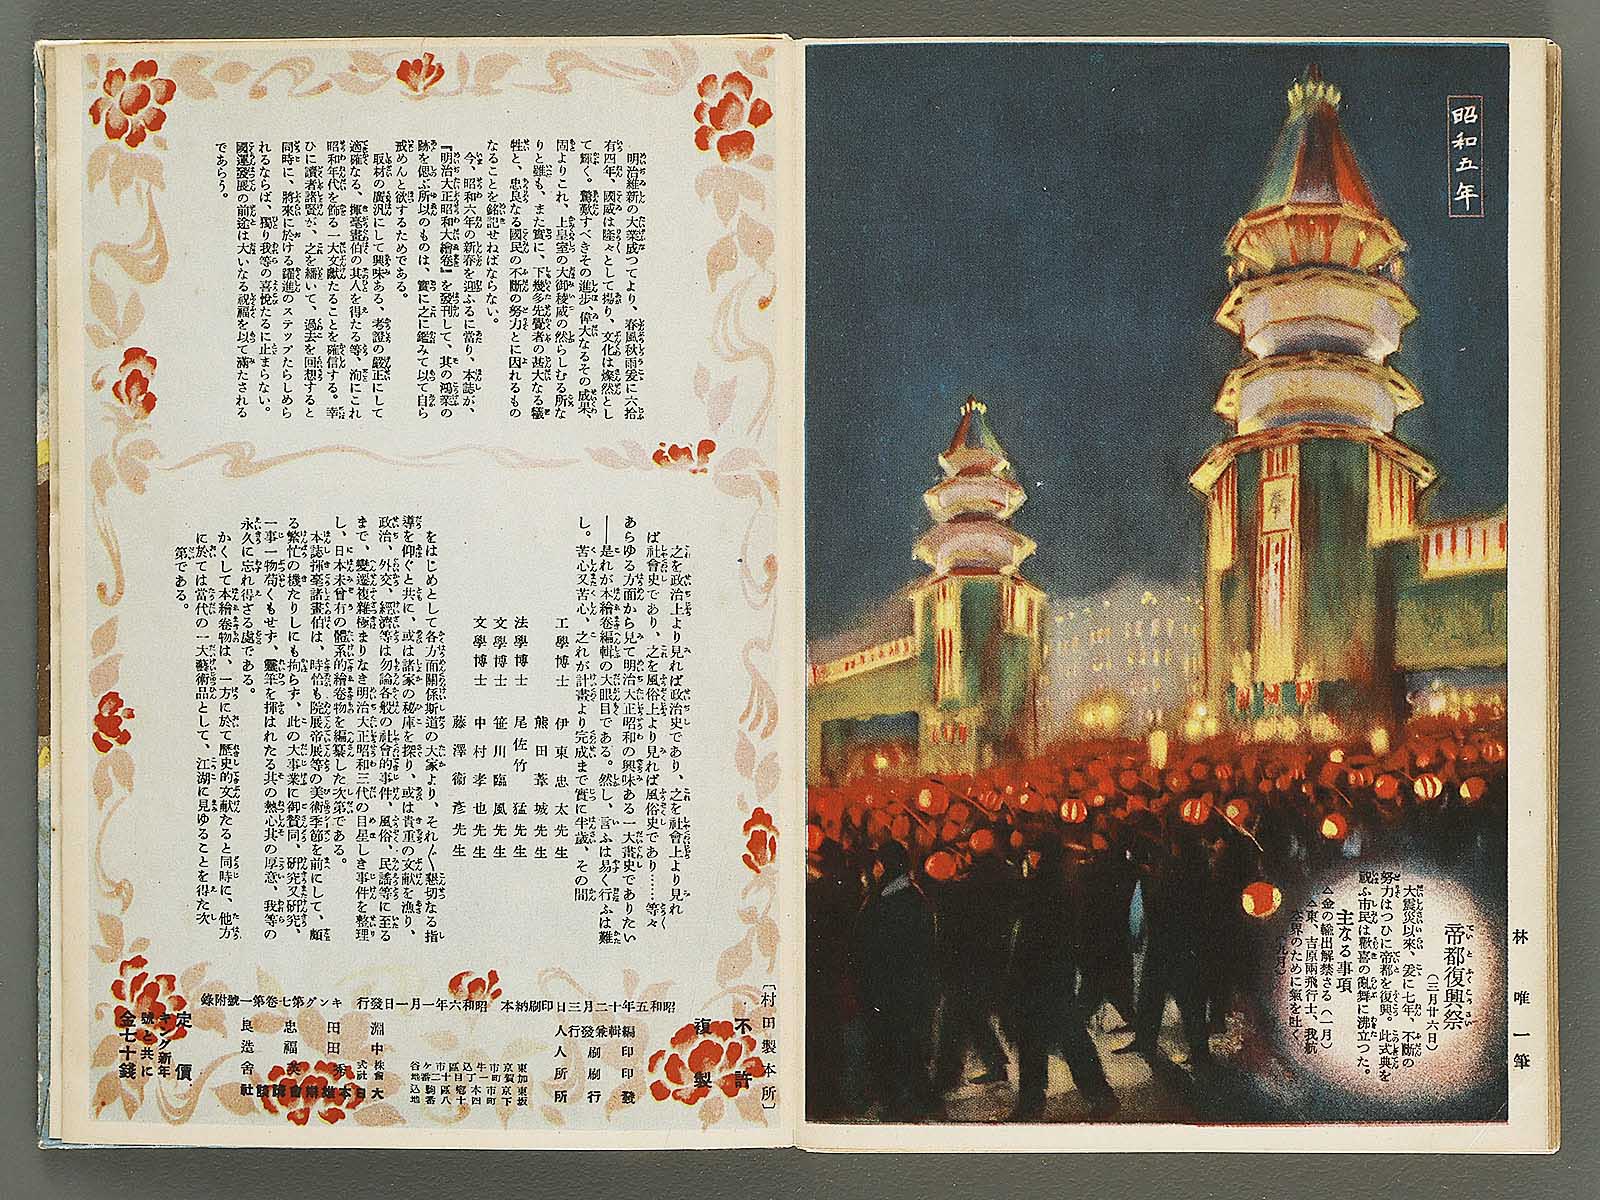 昭和五年
奉
帝都復興祭
(三月廿六日)
大震災以來、爰に七年、不斷の
努力はつひに帝都を復興。此式典を
祝ふ市民は歡喜の亂舞に沸立つた。
主なる事項
△金の輸出解禁さる(一月)
△東、吉原兩飛行士、我航
空界のために氣を吐く
林唯一筆
明治維新の大業成つてより、春風秋雨爰に六拾
有四年、國威は隆々として揚り、文化は燦然とし
て輝く。驚歎すべきその進步、偉大なるその成果、
固よりこれ、上皇室の大御稜威の然らしむる所な
りと雖も、また實に、下幾多先覺者の甚大なる犧
牲と、忠良なる國民の不斷の努力とに因れるもの
なることを銘記せねばならない。
今、昭和六年の新春を迎ふるに當り、本誌が、
『明治大正昭和大繪卷』を發刊して、其の鴻業の
跡を偲ぶ所以のものは、實に之に鑑みて以て自ら
戒めんと欲するためである。
取材の廣汎にして興味ある、考證の嚴正にして
適確なる、揮毫畫伯の其人を得たる等、洵にこれ
昭和年代を飾る一大文獻たることを確信する。幸
ひに讀者諸賢が、之を繙いて、過去を回想すると
同時に、將來に於ける躍進のステップたらしめら
れるならば、獨り我等の喜悅たるに止まらない。
國運發展の前途は大いなる祝福を以て滿たされる
であらう。
之を政治上より見れば政治史であり、之を社會上より見れ
ば社會史であり、之を風俗上より見れば風俗史であり……等々
あらゆる方面から見て明治大正昭和の興味ある一大畫史でありたい
――是れが本繪卷編輯の大眼目である。然し、言ふは易く行ふは難
し。苦心又苦心、之れが計畫より完成まで實に半歲、その間
工學博士 伊東忠太先生
熊田葦城先生
法學博士 尾佐竹猛先生
文學博士 笹川臨風先生
文學博士 中村孝也先生
藤澤衞彥先生
をはじめとして各方面關係斯道の大家より、それ〲懇切なる指
導を仰ぐと共に、或は諸家の秘庫を探り、或は貴重の文獻を漁り、
政治、外交、經濟等は勿論各般の社會的事件、風俗、民謠等に至る
まで、變遷複雜極まりなき明治大正昭和三代の目星しき事件を整理
し、日本未曾有の體系的繪卷物を編纂した次第である。
本誌揮毫諸畫伯は、時恰も院展帝展等の美術季節を前にして、頗
る繁忙の機たりしにも拘らず、此の大事業に御贊同、硏究又硏究、
一事一物苟くもせず、靈筆を揮はれたる其の熱心其の厚意、我等の
永久に忘れ得ざる處である。
かくして本繪卷物は、一方に於て歷史的文獻たると同時に、他方
に於ては當代の一大藝術品として、江湖に見ゆることを得た次
第である。
昭和五年十二月三日印刷納本 昭和六年一月一日發行 キング第七卷第一號附錄
〔村田製本所〕
不許複製
編輯兼發行人
印刷人
印刷所
發行所
淵田忠良
中田福造
株式會社 秀英舍
大日本雄辯會講談社
定價
キング新年
號と共に
金七十錢